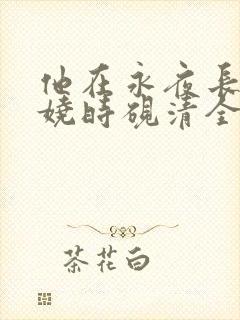 他在永夜長
嬈時硯清全
茶花白